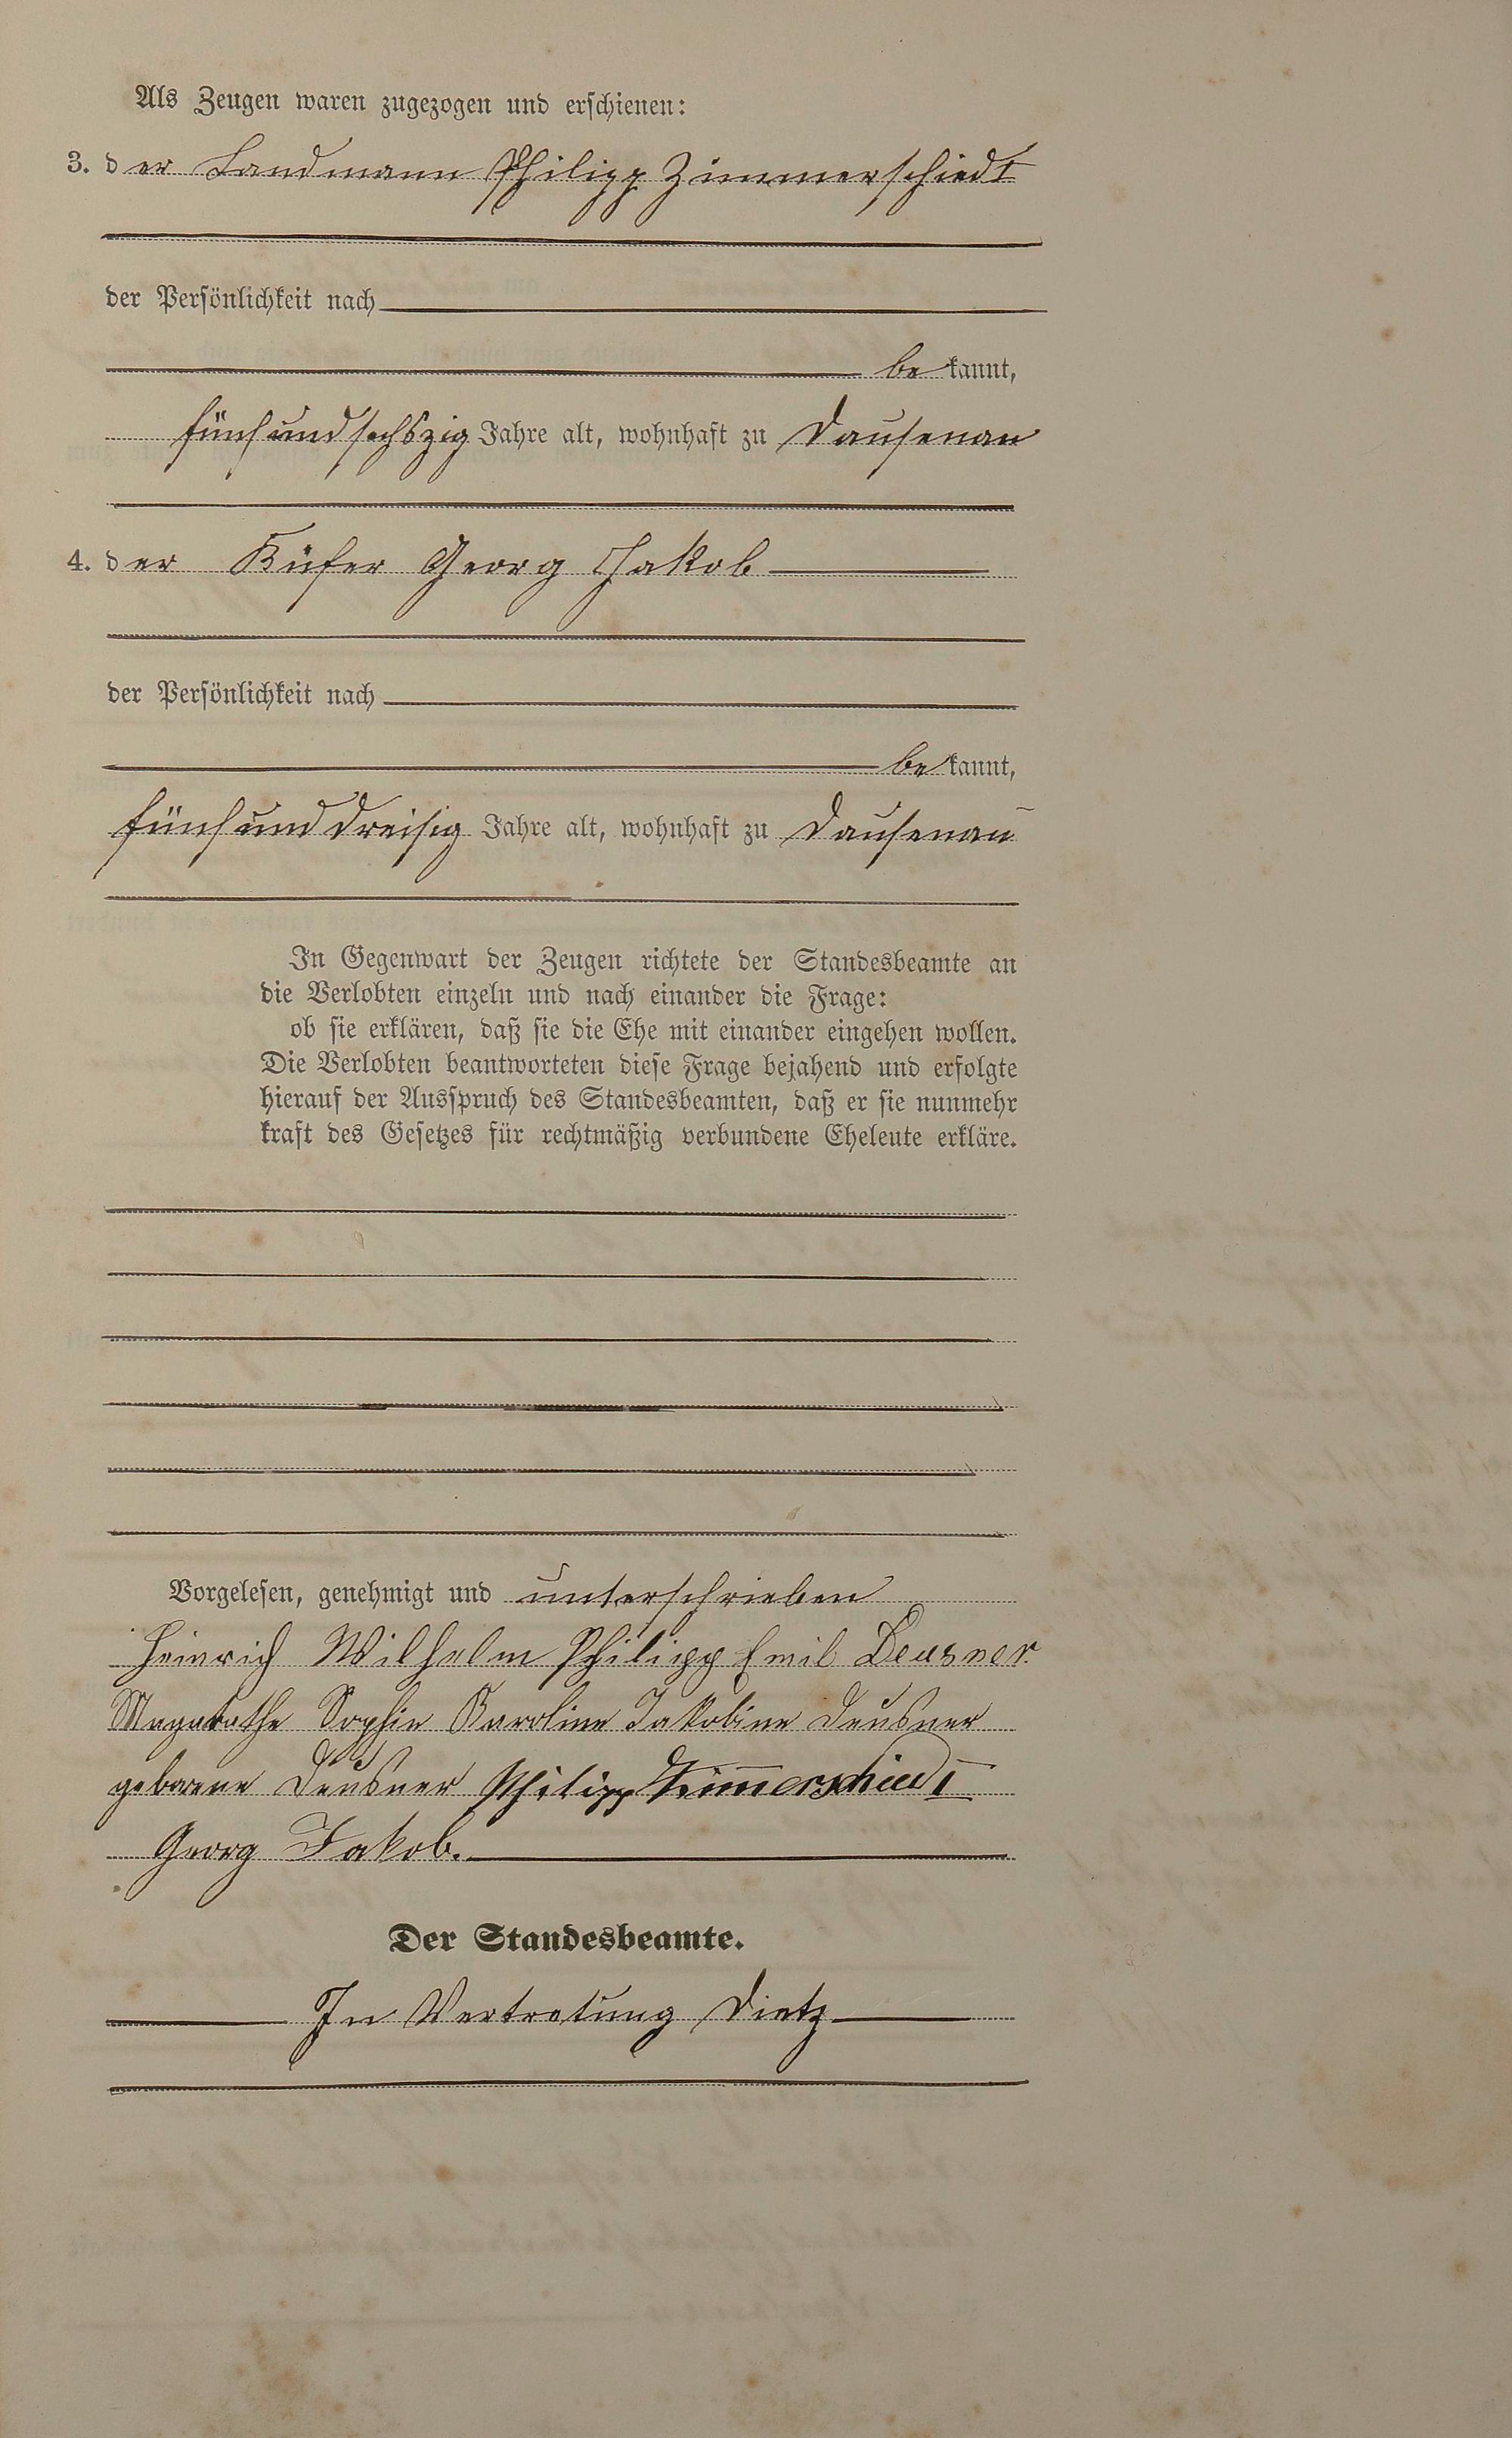 Als Zeugen waren zugezogen und erschienen:
3. der Landmann Philipp Zimmerschiedt
der Persönlichkeit nach
be kannt,
fünfundsechszig Jahre alt, wohnhaft zu Dausenau
4. der Küfer Georg Jakob
der Persönlichkeit nach
be kannt,
fünfunddreisig Jahre alt, wohnhaft zu Dausenau
In Gegenwart der Zeugen richtete der Standesbeamte an
die Verlobten einzeln und nach einander die Frage:
ob sie erklären, daß sie die Ehe mit einander eingehen wollen.
Die Verlobten beantworteten diese Frage bejahend und erfolgte
hierauf der Ausspruch des Standesbeamten, daß er sie nunmehr
kraft des Gesetzes für rechtmäßig verbundene Eheleute erkläre.
Vorgelesen, genehmigt und unterschrieben
Heinrich Wilhelm Philipp Emil Deusner
Sophie Karoline Jakobine Deusner
geborene Deusner Philipp Zimmerschiedt
Georg Jakob.
Der Standesbeamte.
In Vertretung Dietz